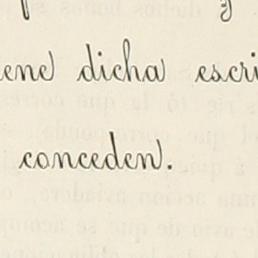 ene dicha escri
conceden.